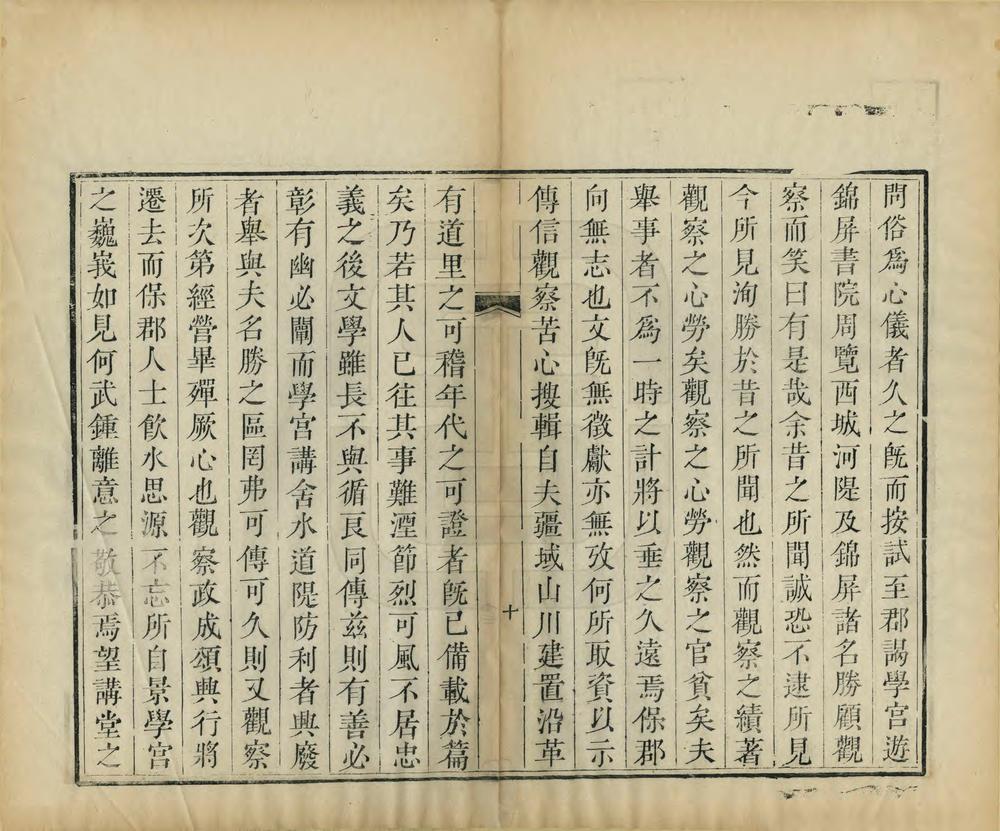 問俗爲心儀者久之旣而按試至郡謁學宮遊
錦屏書院周覽西城河隄及錦屏諸名勝顧觀
察而笑曰有是哉余昔之所聞誠恐不逮所見
今所見洵勝於昔之所聞也然而觀察之績著
觀察之心勞矣觀察之心勞觀察之官貧矣夫
舉事者不爲一時之計將以垂之久遠焉保郡
向無志也文旣無徵獻亦無攷何所取資以示
傳信觀察苦心搜輯自夫疆域山川建置沿革
十
有道里之可稽年代之可證者旣已備載於篇
矣乃若其人已往其事難湮節烈可風不居忠
義之後文學雖長不與循良同傳茲則有善必
彰有幽必闡而學宮講舍水道隄防利者興廢
者舉與夫名勝之區罔弗可傳可久則又觀察
所次第經營畢殫厥心也觀察政成頌興行將
遷去而保郡人士飮水思源不忘所自景學宮
之巍峩如見何武鍾離意之敬恭焉望講堂之